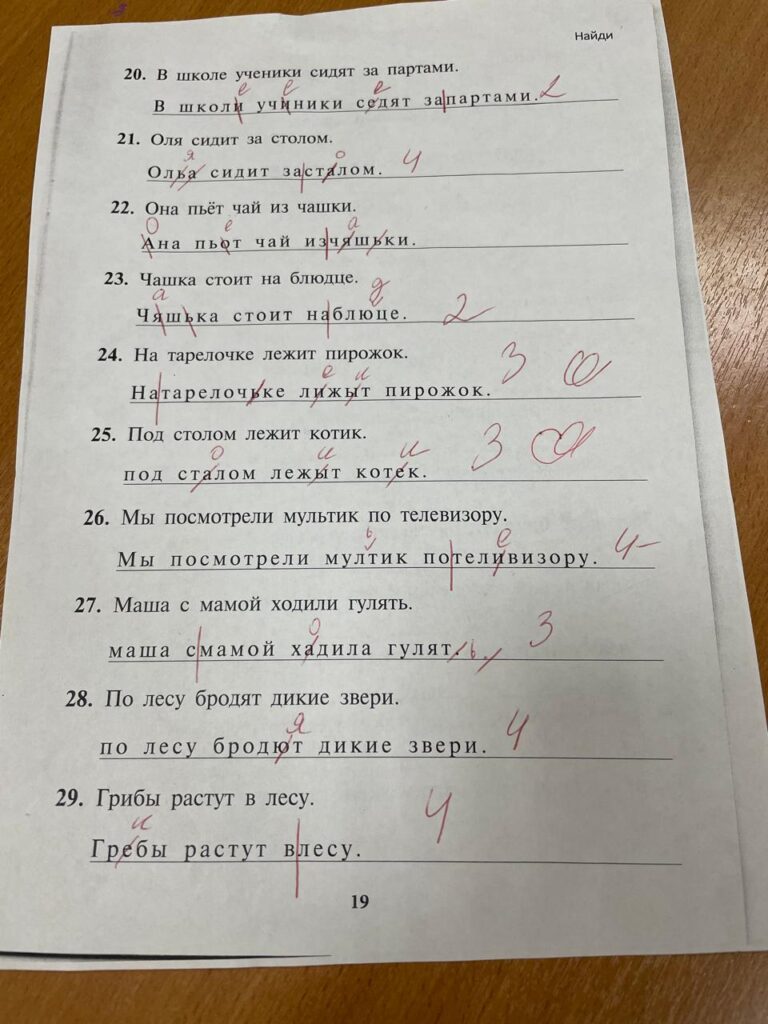 Найди
20. В школе ученики сидят за партами.
е е е
В школи учиникиседят запартами. 2
21. Оля сидит за столом.
я о
Олья сидит засталом. 4
22. Она пьёт чай из чашки.
О ё а
Ана пьот чай изчяшьки.
23. Чашка стоит на блюдце.
а д
Чяшька стоит наблюце. 2
24. На тарелочке лежит пирожок.
е и
Натарелочьке лижыт пирожок. 3
25. Под столом лежит котик.
о и и
под сталом лежыт котек. 3
26. Мы посмотрели мультик по телевизору.
ь е
Мы посмотрели мултик потеливизору. 4-
27. Маша с мамой ходили гулять.
о
маша смамой хадила гулят. ь. 3
28. По лесу бродят дикие звери.
я
по лесу бродют дикие звери. 4
29. Грибы растут в лесу.
и
Гребы растут влесу. 4
19